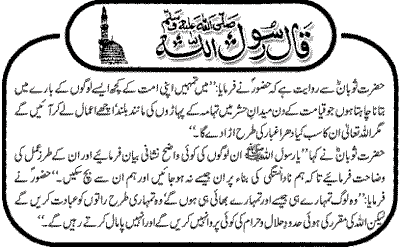 قال رسول اللہ صلی اللہ علیہ وسلم
حضرت ثوبانؓ سے روایت ہے کہ حضورؐ نے فرمایا: ’’میں تمہیں اپنی امت کے کچھ ایسے لوگوں کے بارے میں
بتانا چاہتا ہوں جو قیامت کے دن میدانِ حشر میں تہامہ کے پہاڑوں کی مانند بلند اچھے اعمال لے کر آئیں گے
مگر اللہ تعالیٰ ان کا سب کیا دھرا غبار کی طرح اڑا دے گا‘‘۔
حضرت ثوبانؓ نے کہا ’’یا رسول اللہ ﷺ ان لوگوں کی کوئی واضح نشانی بیان فرمائیے اور ان کے طرزِ عمل کی
وضاحت فرمائیے تاکہ ہم نادانستگی کی بناء پر ان جیسے نہ ہو جائیں اور ہم ان سے بچ سکیں۔‘‘ حضورؐ نے
فرمایا: ’’وہ لوگ تمہارے ہی جیسے اور تمہارے بھائی ہی ہوں گے وہ تمہاری طرح راتوں کو عبادت کریں گے
لیکن اللہ کی مقرر کی ہوئی حدودِ حلال و حرام کی کوئی پروا نہیں کریں گے اور انہیں پامال کرتے رہیں گے۔‘‘